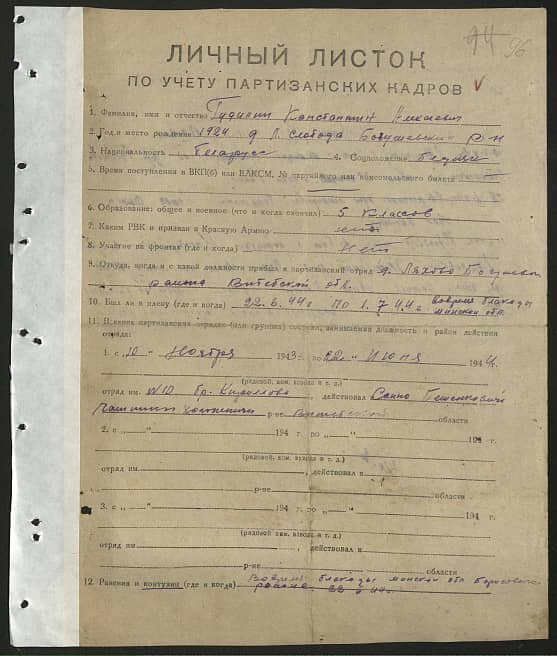 96
ЛИЧНЫЙ ЛИСТОК
ПО УЧЕТУ ПАРТИЗАНСКИХ КАДРОВ
1. Фамилия, имя и отчество Константин
2. Год и место рождения 1924 д. Слобода Богушевский р-н
3. Национальность Беларусс 4. Соцположение
5. Время поступления в ВКП(б) или ВЛКСМ, № партийного или комсомольского билета
6. Образование: общее и военное (что и когда окончил) 5 классов
7. Каким РВК и призван в Красную Армию нет
8. Участие на фронтах (где и когда) Нет
9. Откуда, когда и с какой должности прибыл в партизанский отряд д. Ляхово
района Витебской обл.
10. Был ли в плену (где и когда) 22.6.44г по 1.7.44г вовремя блакады
минской обл.
11. В каких партизанских отрядах (или группах) состоял, занимаемая должность и район действия
отряда:
1. с „10“ Ноября 1943 г. по „22“ Июня 1944 г.
(рядовой, ком. взвода и т. д.)
отряд им. №10 бр. Кириллова, действовал Сенно
р-не Витебской области
2. с „ “ 194 г. по „ “ 194 г.
(рядовой, ком. взвода и т. д.)
отряд им. , действовал в
р-не области
3. с „ “ 194 г. по „ “ 194 г.
(рядовой, ком. взвода и т. д.)
отряд им , действовал в
р-не области
12. Ранения и контузии (где и когда) Вовремя блакады минской обл
района 22 6 44г.